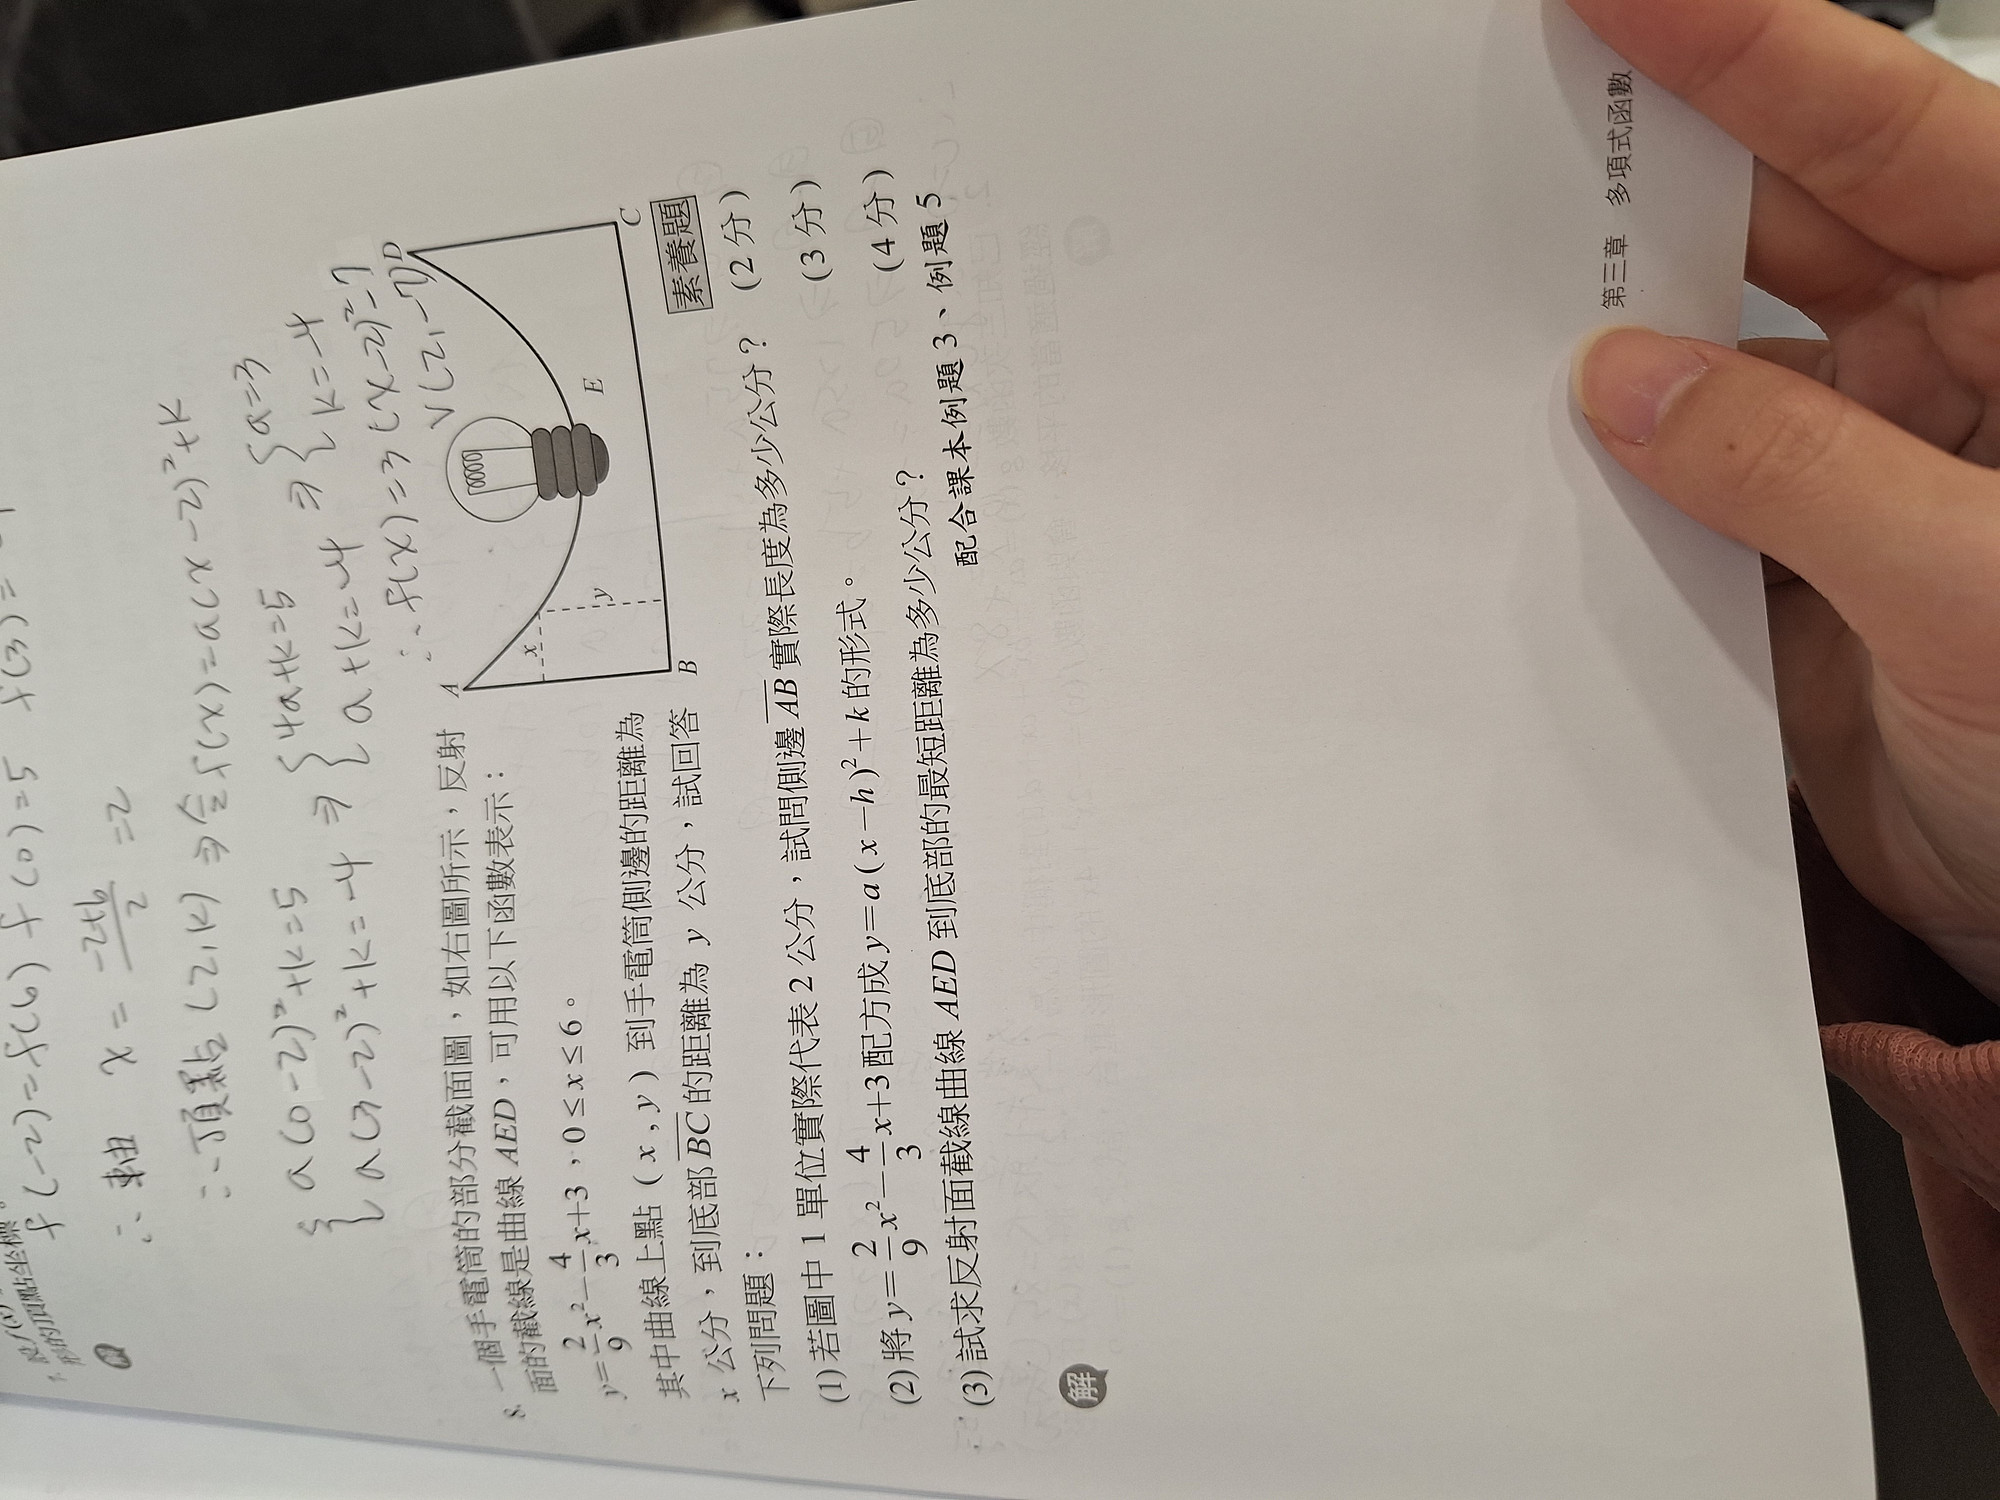 f(-2)=f(6) f(0)=5 f(3)=
形的頂點坐標。
∴軸 x = -2+6/2 =2
∴頂點(2,k) ⇒ 令f(x)=a(x-2)²+k
{ a(0-2)²+k=5 ⇒ { 4a+k=5 ⇒ { a=3
{ a(3-2)²+k=-4 { a+k=-4 { k=-4
∴f(x)=3(x-2)²-7
V(2,-7)
8. 一個手電筒的部分截面圖,如右圖所示,反射
面的截線是曲線AED,可用以下函數表示:
y=2/9x²-4/3x+3,0≤x≤6。
其中曲線上點(x,y)到手電筒側邊的距離為
x公分,到底部BC的距離為y公分,試回答
下列問題:
素養題
A
B
C
D
E
x
y
(1)若圖中1單位實際代表2公分,試問側邊AB實際長度為多少公分? (2分)
(2)將y=2/9x²-4/3x+3配方成y=a(x-h)²+k的形式。 (3分)
(3)試求反射面截線曲線AED到底部的最短距離為多少公分? (4分)
配合課本例題3、例題5
解
第三章 多項式函數